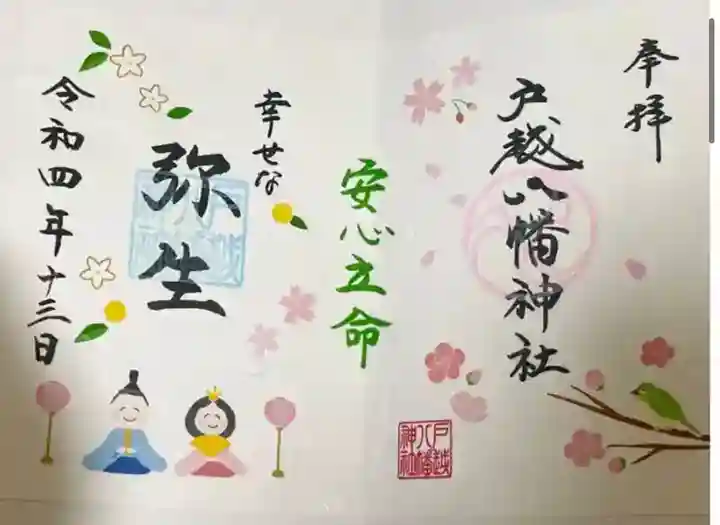 奉拝
戸越八幡神社
戸越
八幡
神社
安心立命
幸せな
弥生
令和四年十三日